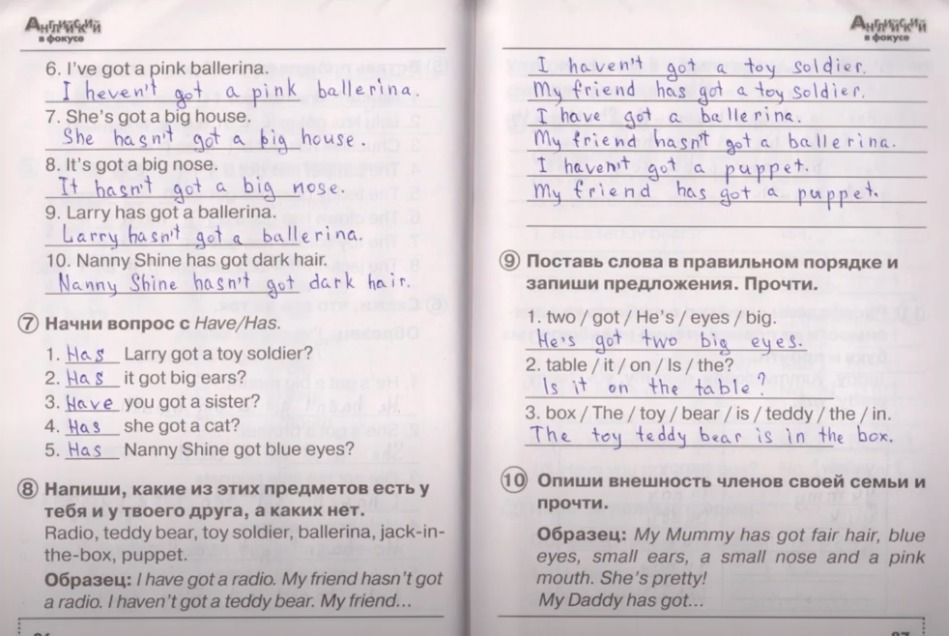 Английский
в фокусе
6. I've got a pink ballerina.
I heven't got a pink ballerina.
7. She's got a big house.
She hasn't got a big house.
8. It's got a big nose.
It hasn't got a big nose.
9. Larry has got a ballerina.
Larry hasn't got a ballerina.
10. Nanny Shine has got dark hair.
Nanny Shine hasn't got dark hair.
7 Начни вопрос с Have/Has.
1. Has Larry got a toy soldier?
2. Has it got big ears?
3. Have you got a sister?
4. Has she got a cat?
5. Has Nanny Shine got blue eyes?
8 Напиши, какие из этих предметов есть у
тебя и у твоего друга, а каких нет.
Radio, teddy bear, toy soldier, ballerina, jack-in-
the-box, puppet.
Образец: I have got a radio. My friend hasn't got
a radio. I haven't got a teddy bear. My friend...
Английский
в фокусе
I haven't got a toy soldier.
My friend has got a toy soldier.
I have got a ballerina.
My friend hasn't got a ballerina.
I haven't got a puppet.
My friend has got a puppet.
9 Поставь слова в правильном порядке и
запиши предложения. Прочти.
1. two / got / He's / eyes / big.
He's got two big eyes.
2. table / it / on / Is / the?
Is it on the table?
3. box / The / toy / bear / is / teddy / the / in.
The toy teddy bear is in the box.
10 Опиши внешность членов своей семьи и
прочти.
Образец: My Mummy has got fair hair, blue
eyes, small ears, a small nose and a pink
mouth. She's pretty!
My Daddy has got...